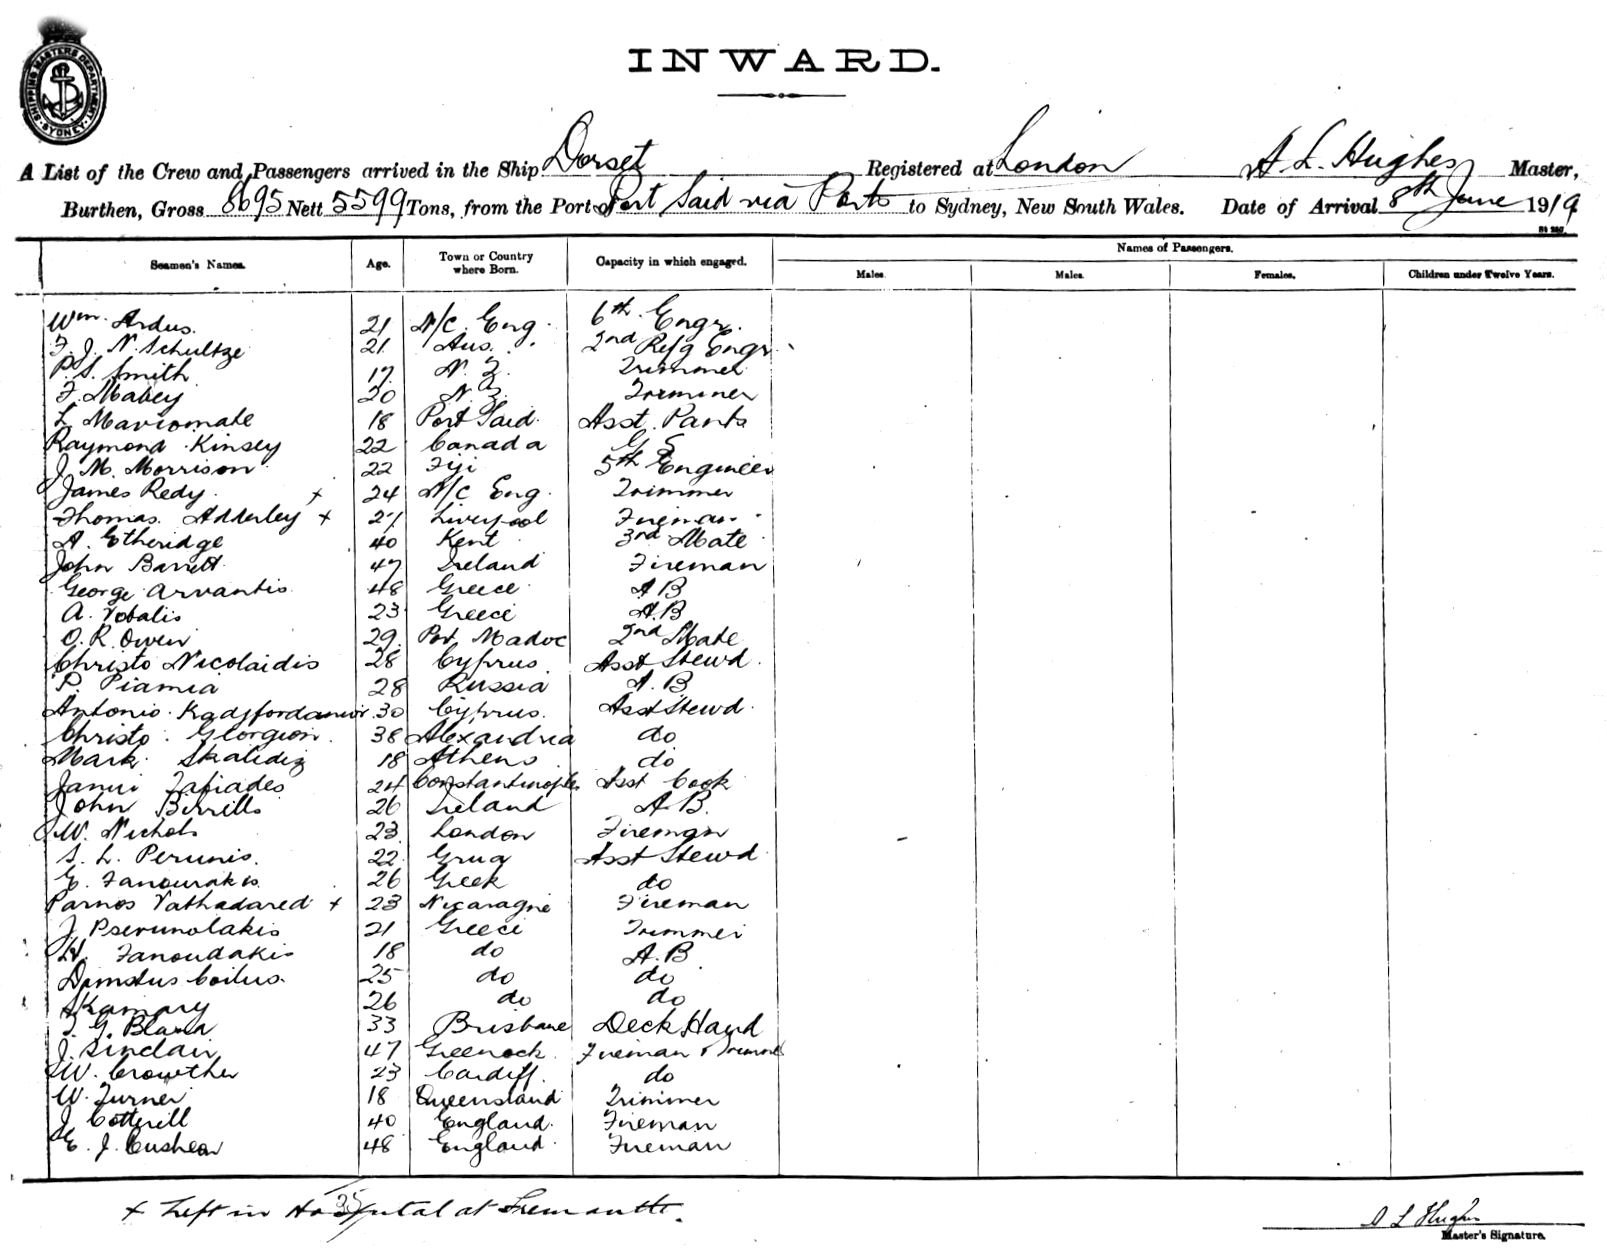 SHIPPING MASTERS DEPARTMENT SYDNEY
INWARD.
A List of the Crew and Passengers arrived in the Ship Dorset Registered at London A L. Hughes Master,
Burthen, Gross 8695 Nett 5599 Tons, from the Port of Port Said via Ports to Sydney, New South Wales. Date of Arrival 8th June 1919
Names of Passengers.
Seamen's Names. Age. Town or Country where Born. Capacity in which engaged. Males. Males. Females. Children under Twelve Years.
Wm. Ardus. 21 N/C. Eng. 6th Engr.
F. J. N. Schultze 21 Aus. 2nd Refg Engr
P. S. Smith 17 N. Z. Trimmer
F. Mabey 20 N. Z. Trimmer
L. Maviomate 18 Port Said. Asst. Pants
Raymond Kinsey 22 Canada G S
J. M. Morrison 22 Fiji 5th Engineer
James Redy. + 24 N/C Eng. Trimmer
Thomas Adderley + 27 Liverpool Fireman
A. Etheridge 40 Kent 3rd Mate
John Barrett 47 Ireland Fireman
George Arvantis 48 Greece A B
A. Votalis 23 Greece A.B
O. R. Owen 29 Port Madoc 2nd Mate
Christo Nicolaidis 28 Cyprus Asst Stewd.
P. Piamia 28 Russia A. B
Antonio 30 Cyprus. Asst Stewd.
Christo Georgion 38 Alexandria do
Mark Skalidiz 18 Athens do
Janui Zafiades 24 Constantinople Asst Cook
John Birrills 26 Ireland A. B.
W. Nichols 23 London Fireman
S. L. Perunis. 22 Asst Stewd
E. Fanourakis 26 Greek do
Parnos Vathadared + 23 Nicaragne Fireman
J. Pserunolakis 21 Greece Trimmer
Fanoudakis 18 do A. B.
25 do do
Skamary 26 do do
J. G. Bland 33 Brisbane Deck Hand
J. Sinclair 47 Greenock Fireman & Trimmer
W. Crowther 23 Cardiff. do
W. Turner 18 Queensland Trimmer
J. Cotterill 40 England. Fireman
E. J. Cushean 48 England. Fireman
+ Left in Hospital at Fremantle. 35
A L Hughes
Master's Signature.